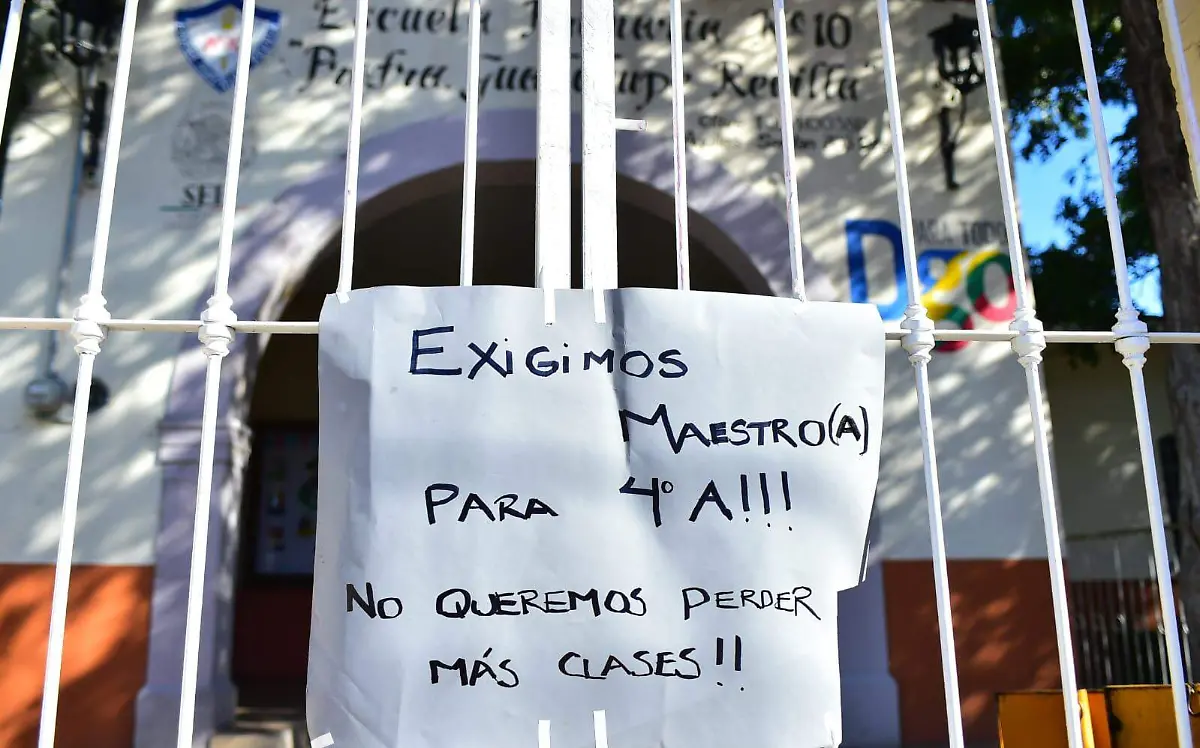 Escuela Primaria Nº 10
"Profra. Guadalupe Revilla"
SEE
PARA TODOS
Dgo
EXIGIMOS
MAESTRO(A)
PARA 4º A!!!
NO QUEREMOS PERDER
MÁS CLASES!!